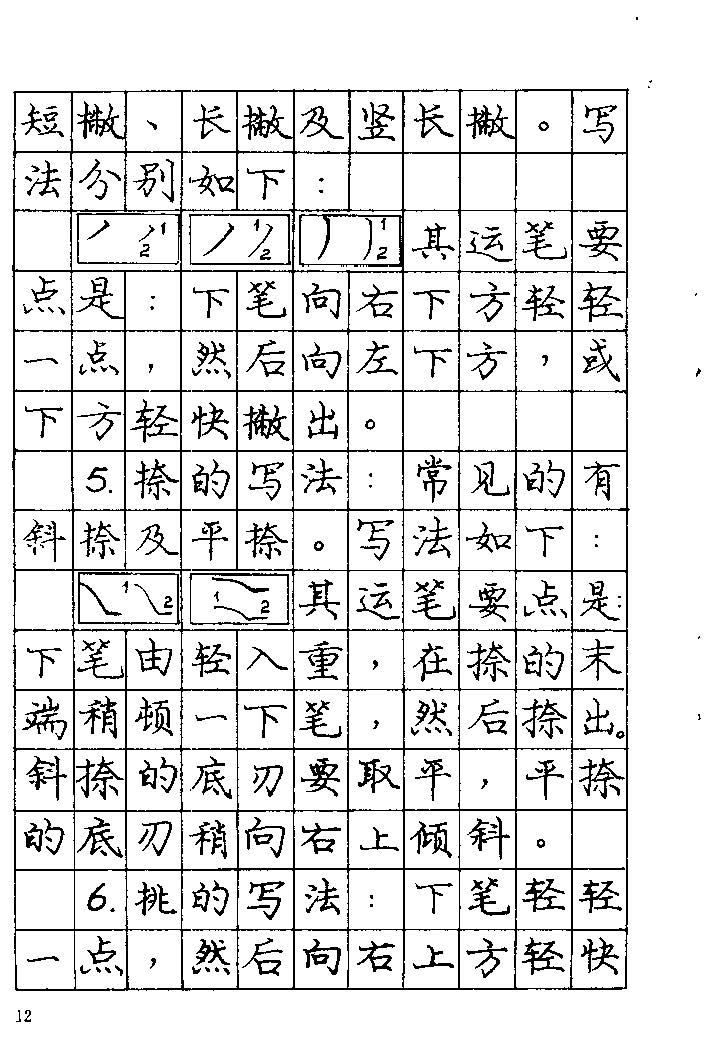 短撇、长撇及竖长撇。写
法分别如下：
1 2 1 2 1 2 其运笔要
点是：下笔向右下方轻轻
一点，然后向左下方，或
下方轻快撇出。
5.捺的写法：常见的有
斜捺及平捺。写法如下：
1 2 1 2 其运笔要点是：
下笔由轻入重，在捺的末
端稍顿一下笔，然后捺出。
斜捺的底刃要取平，平捺
的底刃稍向右上倾斜。
6.挑的写法：下笔轻轻
一点，然后向右上方轻快
12